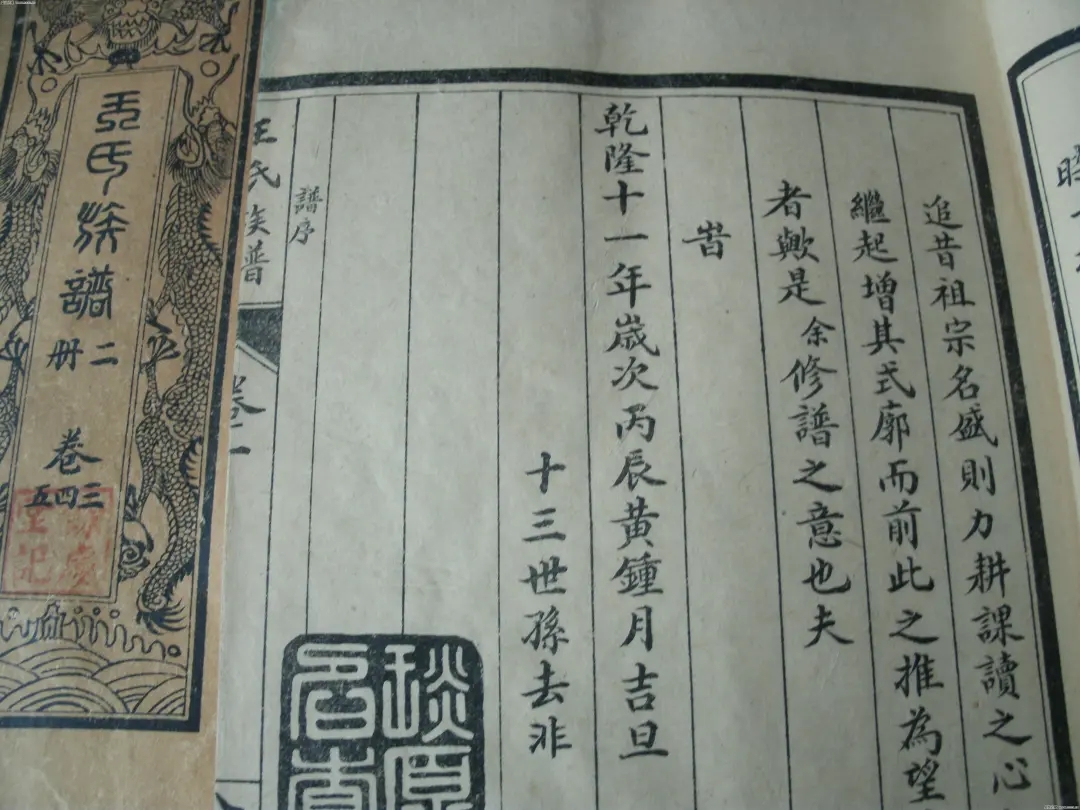 追昔祖宗名盛則力耕課讀之心
繼起增其式廓而前此之推為望
者歟是余修譜之意也夫
旹
乾隆十一年歲次丙辰黃鍾月吉旦
十三世孫去非
譜序
王氏族譜
王氏族譜
二冊
卷
三四五